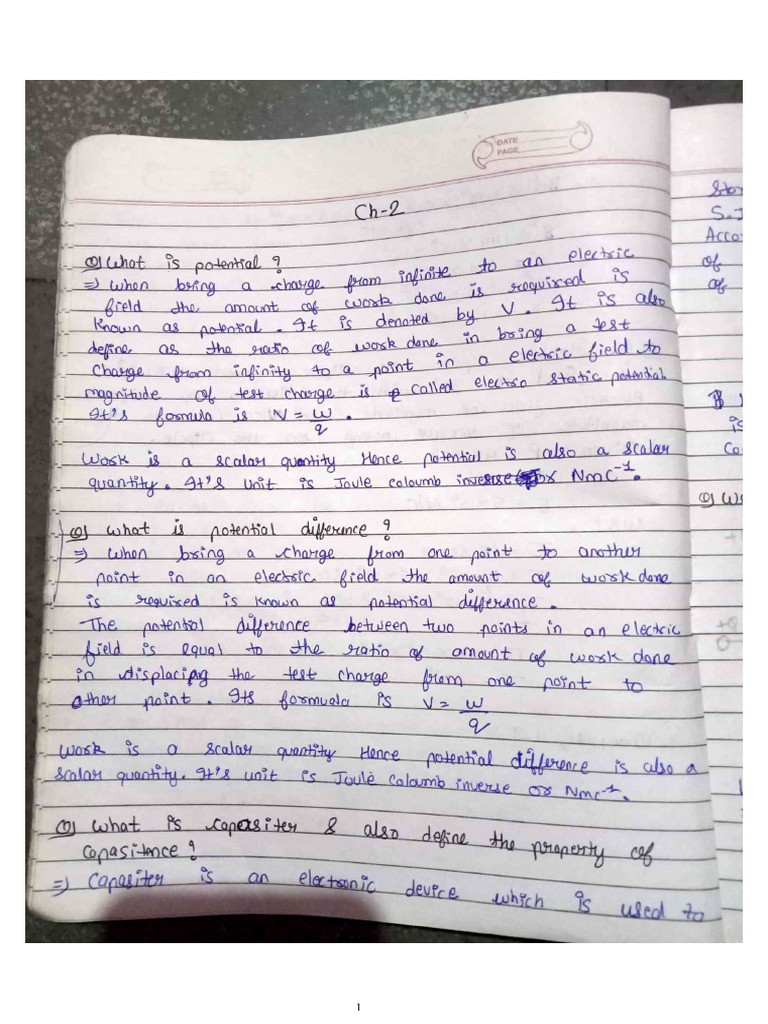 DATE
PAGE
Ch-2
Q) What is potential ?
⇒ when bring a charge from infinite to an electric
field the amount of work done is required is
known as potential. It is denoted by V. It is also
define as the ratio of work done in bring a test
charge from infinity to a point in a electric field to
magnitude of test charge is called electro static potential
It's formula is V = w/q .
Work is a scalar quantity Hence potential is also a scalar
quantity. It's unit is Joule coloumb inverse or NmC⁻¹.
Q) What is potential difference ?
⇒ When bring a charge from one point to another
point in an electric field the amount of work done
is required is known as potential difference.
The potential difference between two points in an electric
field is equal to the ratio of amount of work done
in displacing the test charge from one point to
other point. Its formuala is V = w/q
Work is a scalar quantity Hence potential difference is also a
scalar quantity. It's unit is Joule coloumb inverse or Nmc⁻¹.
Q) What is capasiter & also define the property of
capasitence ?
⇒ Capasiter is an electronic device which is used to
S.J
Acco
of
of
is
Co
Q) Wr
1